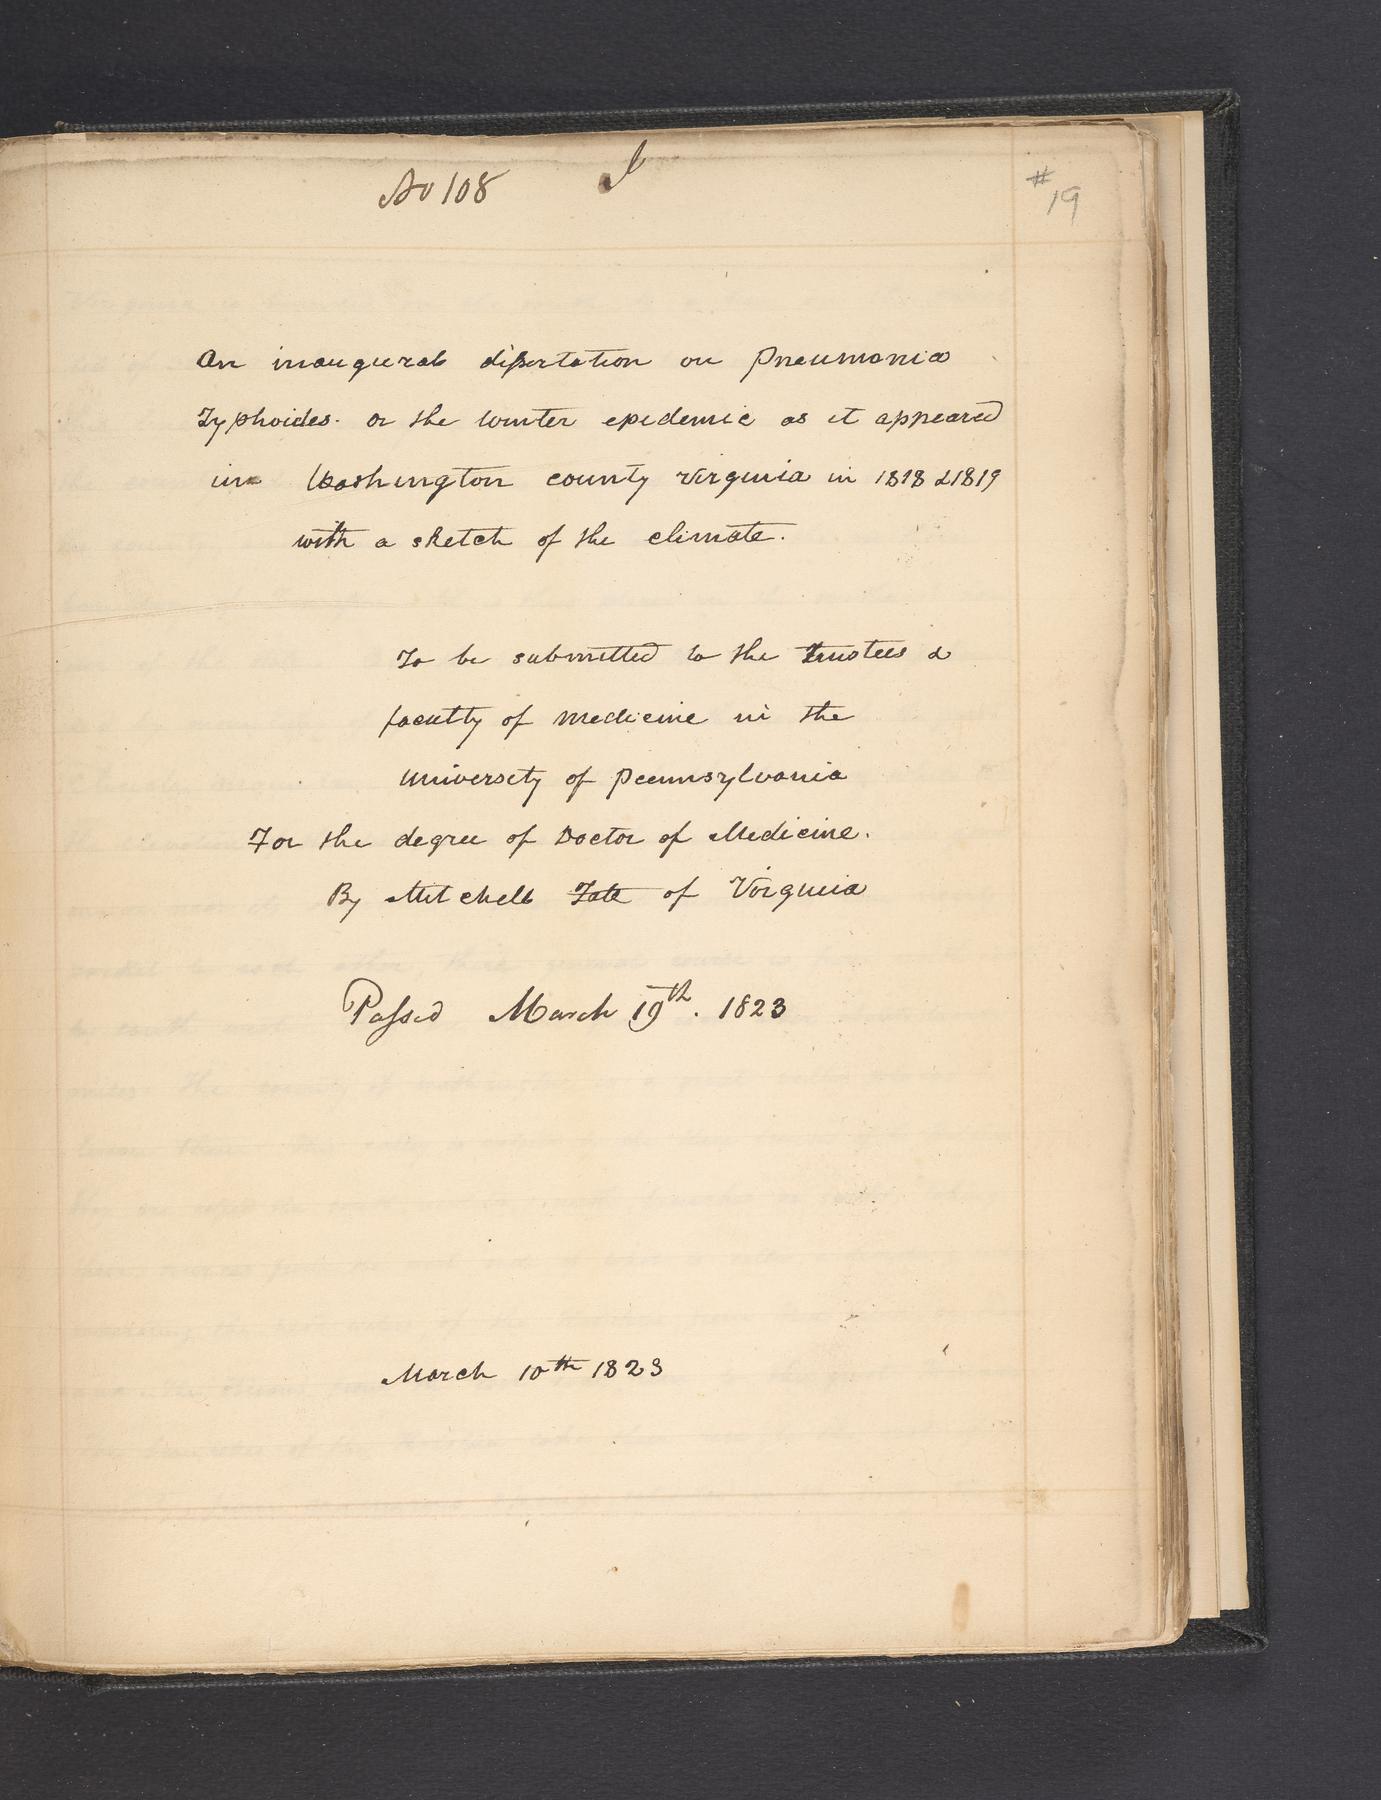 No 108
#
19
An inaugural dissertation on Pneumonia
Typhoides. or the winter epidemic as it appeared
in Washington county virginia in 1818 & 1819
with a sketch of the climate.
To be submitted to the Trustees &
faculty of medicine in the
university of Pennsylvania
For the degree of Doctor of Medicine.
By Mitchell Tate of Virginia
Passed March 19th. 1823
March 10th 1823